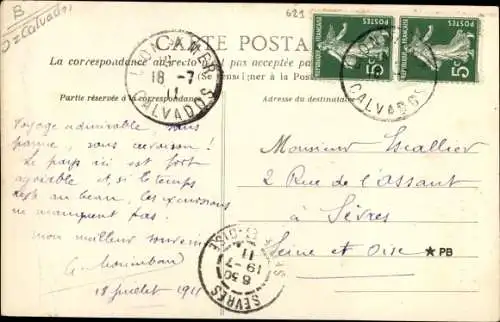 B
Calvados
629
CARTE POSTA
La correspondance au recto
pas acceptée pa
(Se renseigner à la Poste
Partie réservée à la correspondance
Adresse du destinataire
LION-S-MER
18 -7
11
CALVADOS
REPUBLIQUE FRANÇAISE
POSTES
5c
REPUBLIQUE FRANÇAISE
POSTES
5c
LION
CALVADOS
Voyage admirable, sans
panne, sans crevaison !
Le pays ici est fort
agréable et, si le temps
reste au beau, les excursions
ne manquent pas.
mon meilleur souvenir
18 juillet 1911
Monsieur Escallier
2 Rue de l'assaut
à Sèvres
Seine et Oise
★ PB
S-ET-OISE
8 30
19 -7
11
SEVRES